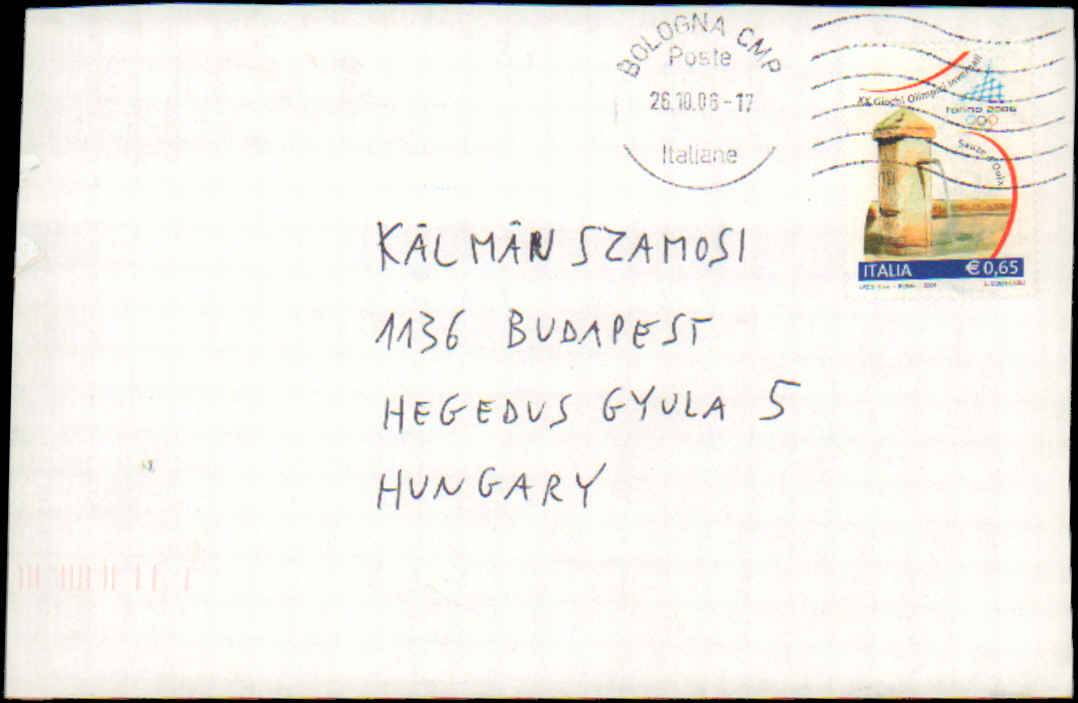 BOLOGNA CMP
Poste
26.10.06-17
Italiane
XX Giochi Olimpici Invernali
torino 2006
Sauze d'Oulx
ITALIA €0,65
KĀLMĀN SZAMOSI
1136 BUDAPEST
HEGEDUS GYULA 5
HUNGARY